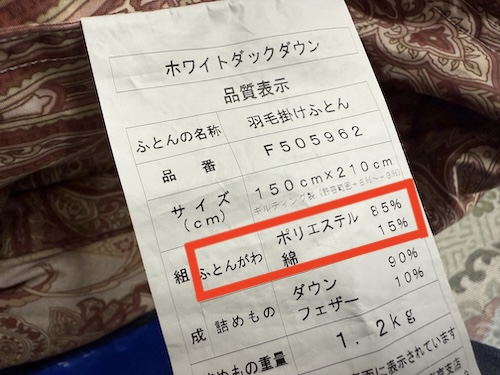 ホワイトダックダウン
品質表示
ふとんの名称 羽毛掛けふとん
品番 F505962
サイズ(cm) 150cm×210cm
組 ふとんがわ ポリエステル 85%
綿 15%
成 詰めもの ダウン 90%
フェザー 10%
めもの重量 1.2kg
面に表示されています